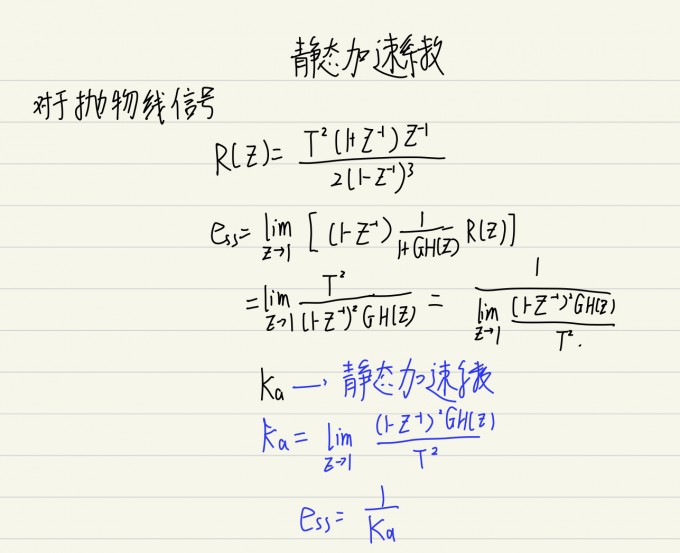 静态加速系数
对于抛物线信号
R(Z)= T²(1+Z⁻¹)Z⁻¹ / 2(1-Z⁻¹)³
ess= lim Z→1 [ (1-Z⁻¹) 1/(1+GH(Z)) R(Z)]
= lim Z→1 T² / (1-Z⁻¹)²GH(Z) = 1 / lim Z→1 (1-Z⁻¹)²GH(Z) / T².
Ka → 静态加速系数
Ka= lim Z→1 (1-Z⁻¹)²GH(Z) / T²
ess= 1/Ka